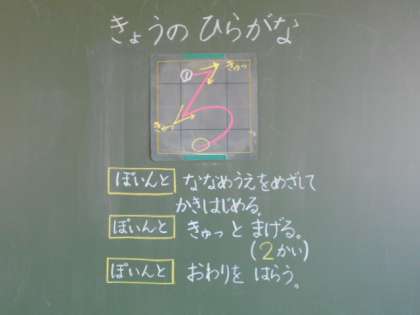 きょうの ひらがな
① きゅっ
ろ
きゅっ
ぽいんと ななめうえをめざして
かきはじめる。
ぽいんと きゅっと まげる。
(2かい)
ぽいんと おわりを はらう。